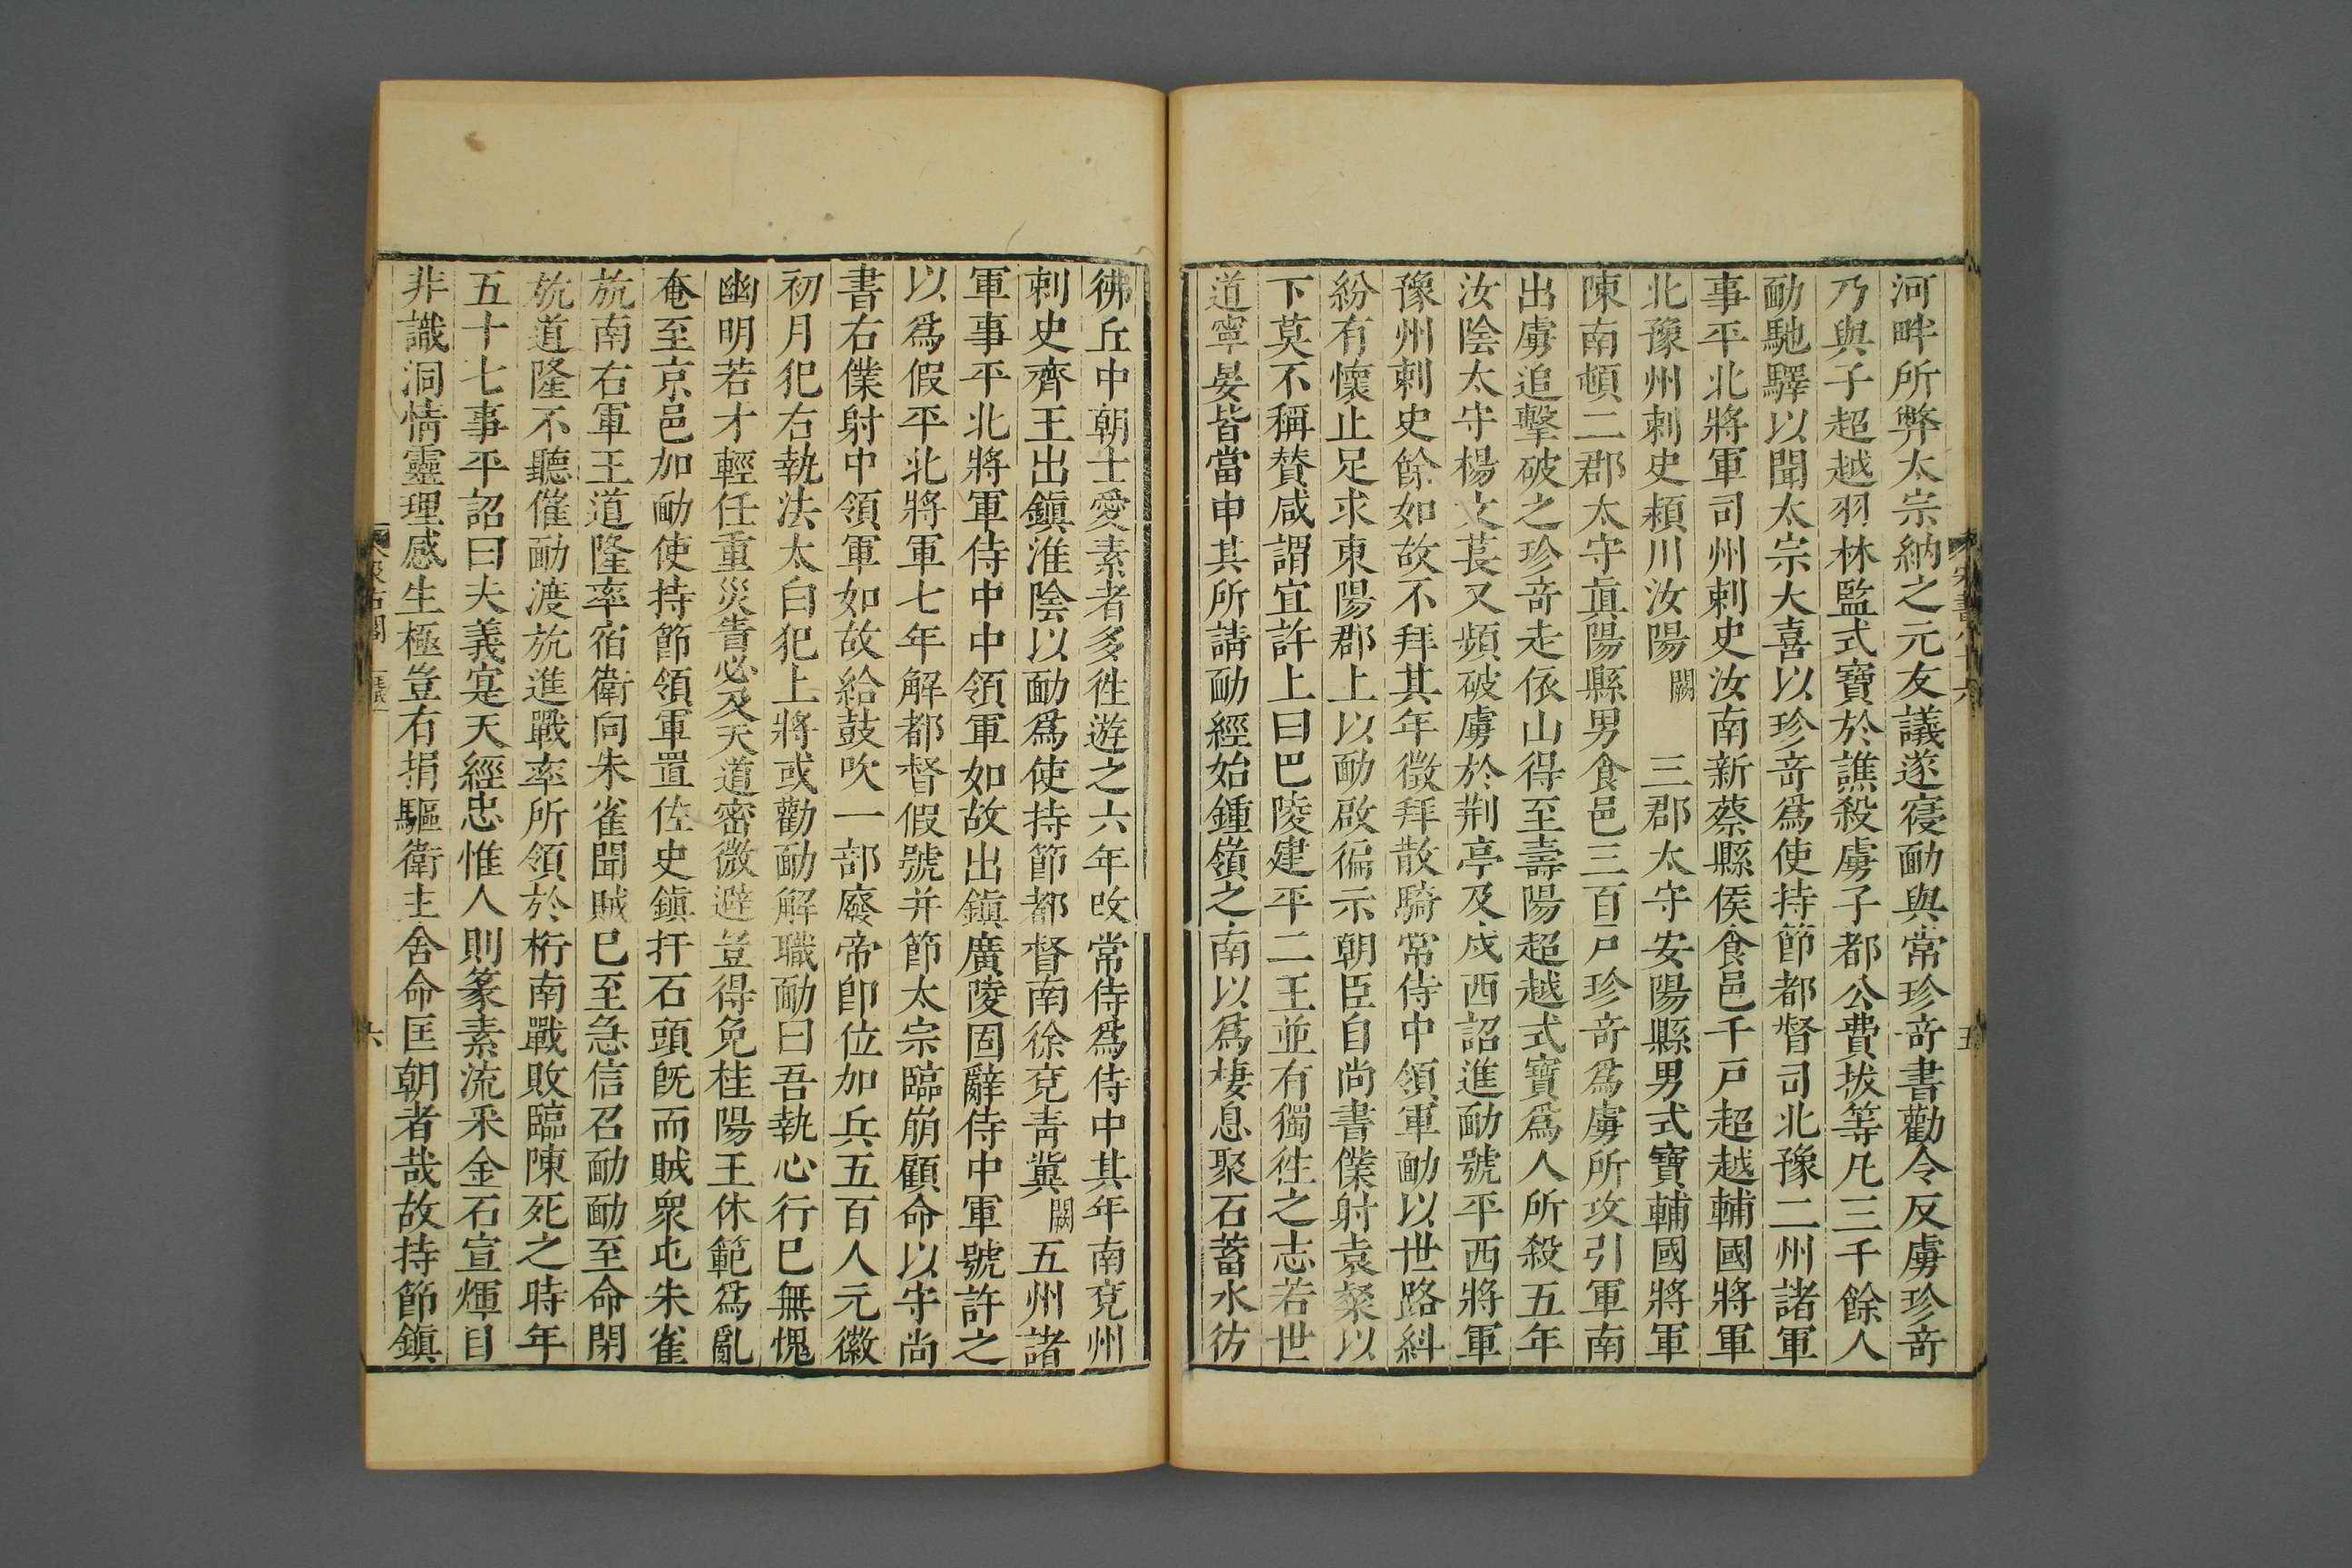 河畔所弊太宗納之元友議遂寢勔與常珍奇書勸令反虜珍奇
乃與子超越羽林監式寶於譙殺虜子都公費拔等凡三千餘人
勔馳驛以聞太宗大喜以珍奇爲使持節都督司北豫二州諸軍
事平北將軍司州刺史汝南新蔡縣侯食邑千戸超越輔國將軍
北豫州刺史潁川汝陽 闕 三郡太守安陽縣男式寶輔國將軍
陳南頓二郡太守眞陽縣男食邑三百戸珍奇爲虜所攻引軍南
出虜追擊破之珍奇走依山得至壽陽超越式寶爲人所殺五年
汝陰太守楊文萇又頻破虜於荆亭及戍西詔進勔號平西將軍
豫州刺史餘如故不拜其年徵拜散騎常侍中領軍勔以世路糾
紛有懷止足求東陽郡上以勔啟徧示朝臣自尚書僕射袁粲以
下莫不稱贊咸謂宜許上曰巴陵建平二王並有獨徃之志若世
道寧晏皆當申其所請勔經始鍾嶺之南以爲棲息聚石蓄水彷
彿丘中朝士愛素者多徃遊之六年改常侍爲侍中其年南兗州
刺史齊王出鎭淮陰以勔爲使持節都督南徐兗靑冀 闕 五州諸
軍事平北將軍侍中中領軍如故出鎭廣陵固辭侍中軍號許之
以爲假平北將軍七年解都督假號并節太宗臨崩顧命以守尚
書右僕射中領軍如故給鼓吹一部廢帝卽位加兵五百人元徽
初月犯右執法太白犯上將或勸勔解職勔曰吾執心行已無愧
幽明若才輕任重災眚必及天道密微避豈得免桂陽王休範爲亂
奄至京邑加勔使持節領軍置佐史鎭扞石頭旣而賊衆屯朱雀
航南右軍王道隆率宿衛向朱雀聞賊已至急信召勔勔至命閉
航道隆不聽催勔渡航進戰率所領於桁南戰敗臨陳死之時年
五十七事平詔曰夫義寔天經忠惟人則篆素流釆金石宣煇自
非識洞情靈理感生極豈右捐驅衛主舍命匡朝者哉故持節鎭
五
六